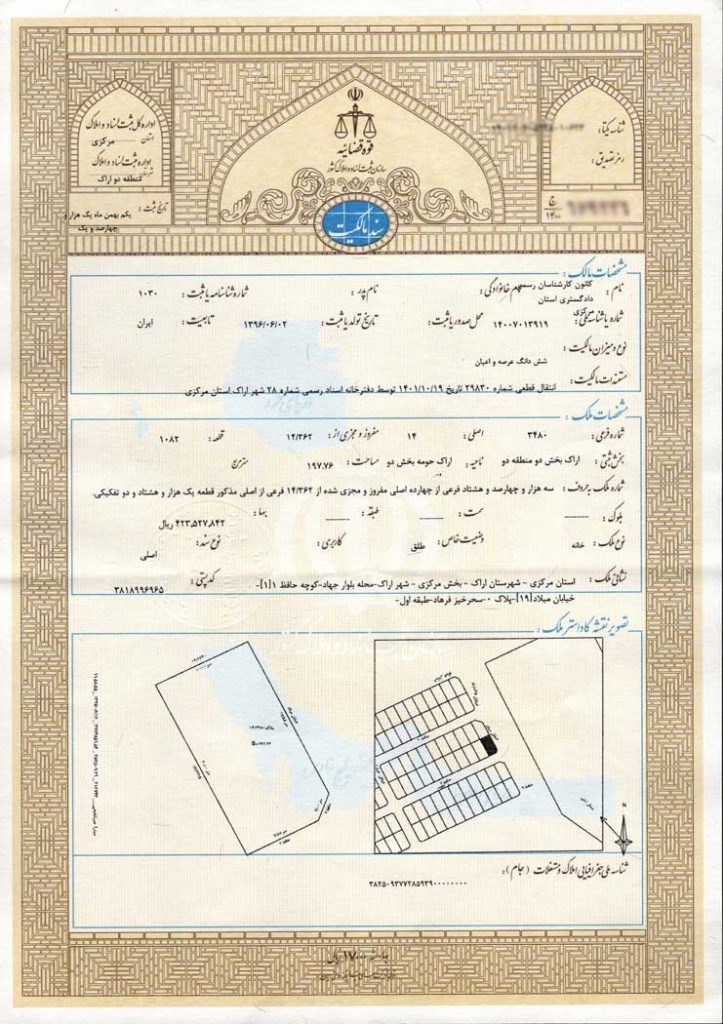 قوه قضائیه
سازمان ثبت اسناد و املاک کشور
سند مالکیت
اداره کل ثبت اسناد و املاک
استان مرکزی
اداره ثبت اسناد و املاک
منطقه دو اراک
تاریخ ثبت : یکم بهمن ماه یک هزار و
چهارصد و یک
شناسه یکتا :
رمز تصدیق :
ج
۱۴۰۰
مشخصات مالک :
نام : کانون کارشناسان رسمی دادگستری استان مرکزی نام خانوادگی : نام پدر : شماره شناسنامه یا ثبت : ۱۰۳۰
شماره یا شناسه ملی : ۱۴۰۰۷۰۱۳۹۱۹ محل صدور یا ثبت : تاریخ تولد یا ثبت : ۱۳۹۶/۰۶/۰۲ تابعیت : ایران
نوع و میزان مالکیت : شش دانگ عرصه و اعیان
مستندات مالکیت : انتقال قطعی شماره ۲۹۸۳۰ تاریخ ۱۴۰۱/۱۰/۱۹ توسط دفترخانه اسناد رسمی شماره ۲۸ شهر اراک استان مرکزی
مشخصات ملک :
شماره فرعی : ۳۴۸۰ اصلی : ۱۴ مفروز و مجزی از : ۱۴/۳۶۲ قطعه : ۱۰۸۲
بخش ثبتی : اراک بخش دو منطقه دو ناحیه : اراک حومه بخش دو مساحت : ۱۹۷.۷۶ مترمربع
شماره ملک به حروف : سه هزار و چهارصد و هشتاد فرعی از چهارده اصلی مفروز و مجزی شده از ۱۴/۳۶۲ فرعی از اصلی مذکور قطعه یک هزار و هشتاد و دو تفکیکی.
بلوک : سمت : طبقه : بها : ۴۲۳,۵۲۷,۸۴۲ ریال
نوع ملک : خانه وضعیت خاص : طلق کاربری : نوع سند : اصلی
نشانی ملک : استان مرکزی - شهرستان اراک - بخش مرکزی - شهر اراک-محله بلوار جهاد-کوچه حافظ ۱[۱]- کدپستی : ۳۸۱۸۹۹۶۹۶۵
خیابان میلاد[۱۹]-پلاک ۰-سحرخیز فرهاد-طبقه اول-
تصویر نقشه کاداستر ملک :
شناسه ملی جغرافیایی املاک و مستغلات (جام) :
۳۸۲۵۰۹۳۷۷۲۸۵۹۳۹۰۰۰۰۰۰۰۰
۱۷۰۰۰ ریال